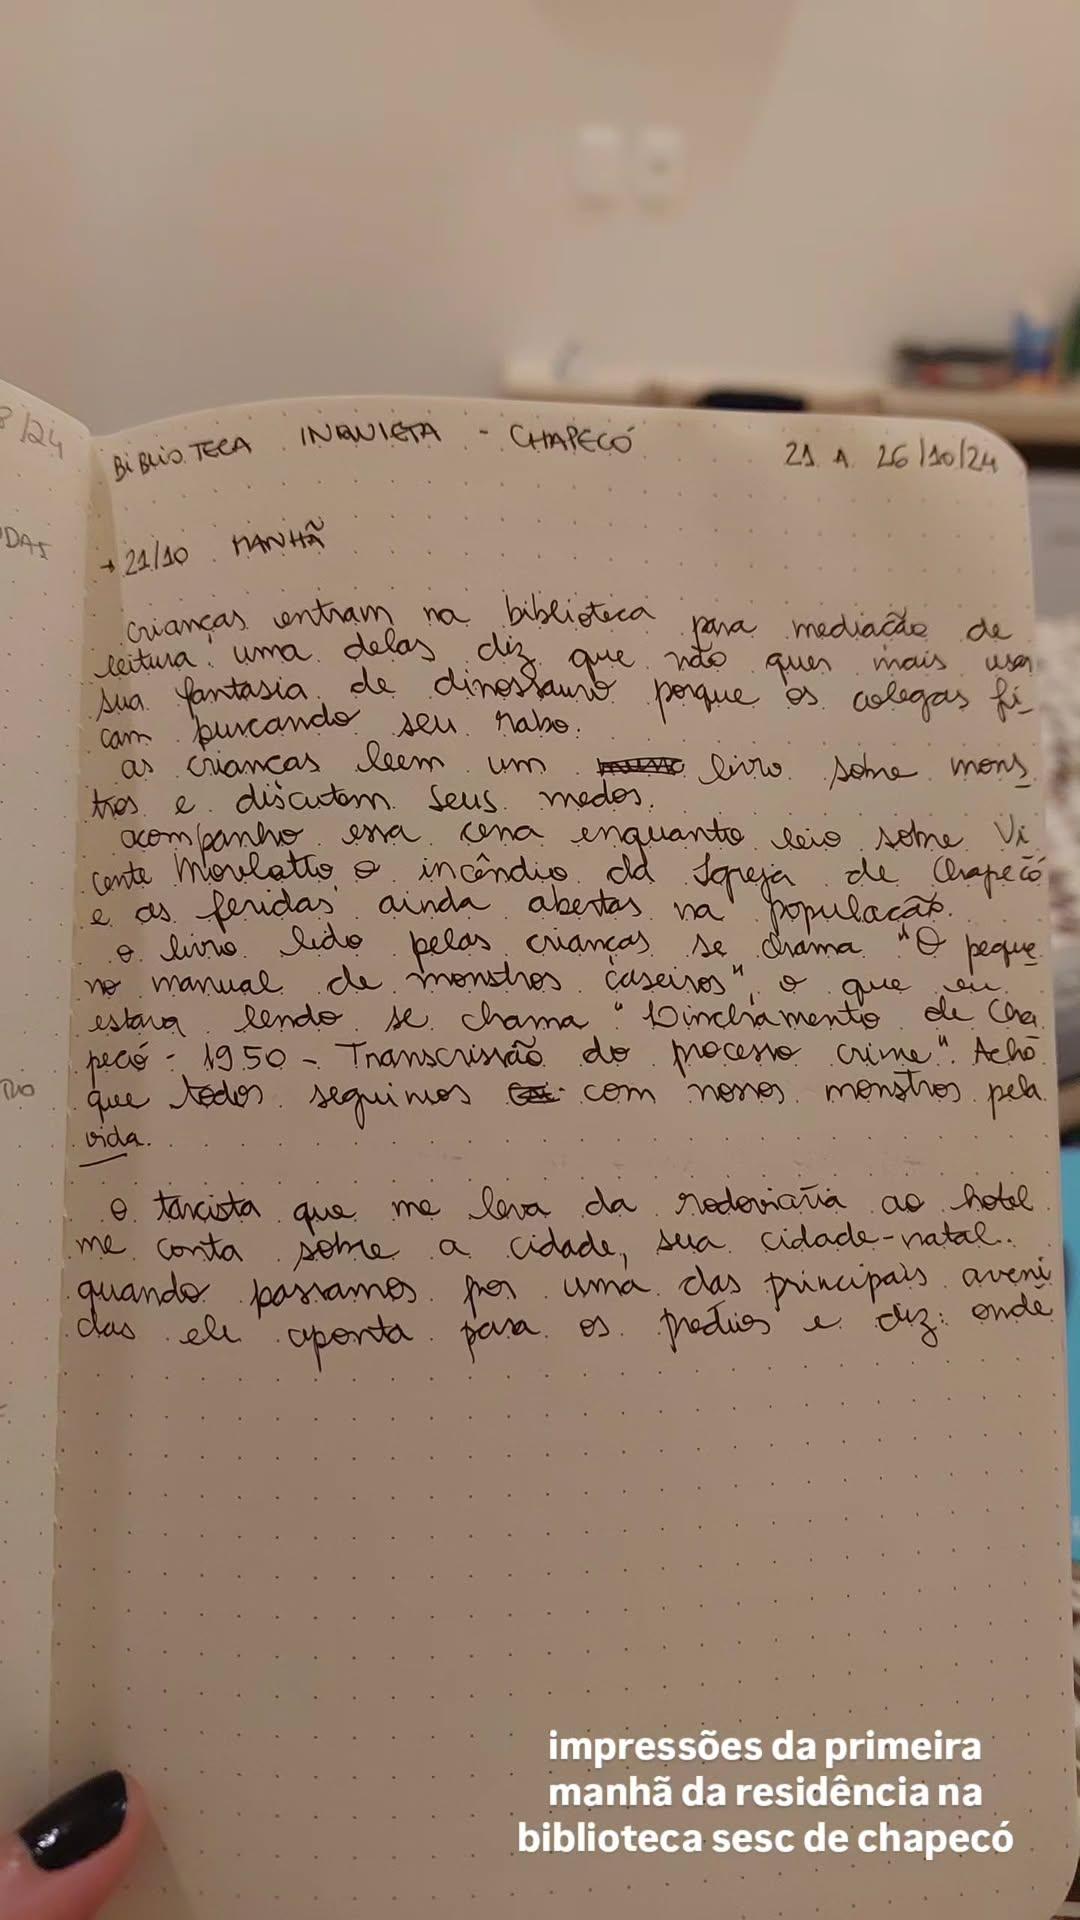 8/24
BIBLIOTECA INQUIETA - CHAPECÓ 21 A 26/10/24
DAS
→ 21/10 MANHÃ
crianças entram na biblioteca para mediação de
leitura. uma delas diz que não quer mais usar
sua fantasia de dinossauro porque os colegas fi_
cam buscando seu rabo.
as crianças leem um livro sobre mons_
tros e discutem seus medos.
acompanho essa cena enquanto leio sobre Vi
cente Morelatto o incêndio da Igreja de Chapecó
e as feridas ainda abertas na população.
o livro lido pelas crianças se chama "O peque_
no manual de monstros caseiros", o que eu
estava lendo se chama "Linchamento de Cha
pecó - 1950 - Transcrissão do processo crime". Acho
que todos seguimos com nossos monstros pela
vida.
O taxista que me leva da rodoviária ao hotel
me conta sobre a cidade, sua cidade-natal.
quando passamos por uma das principais aveni
das ele aponta para os prédios e diz: onde
impressões da primeira
manhã da residência na
biblioteca sesc de chapecó